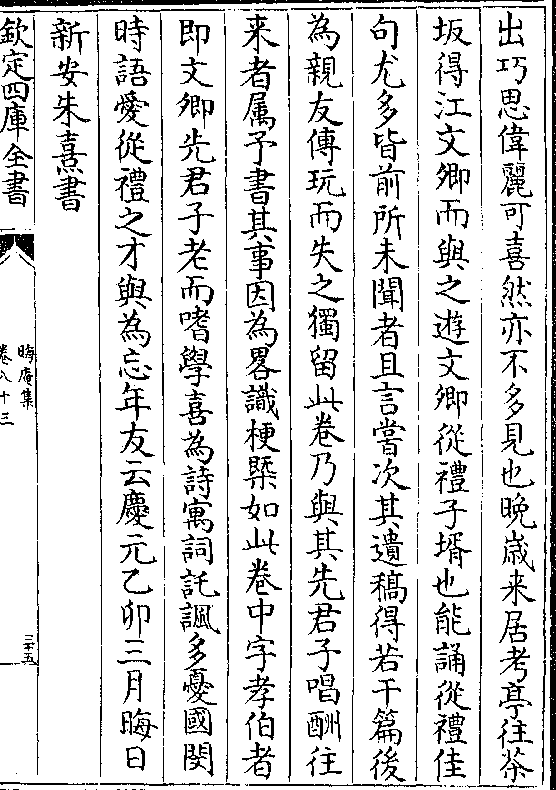 出巧思偉麗可喜然亦不多見也晚嵗来居考亭往茶
坂得江文卿而與之遊文卿從禮子壻也能誦從禮佳
句尤多皆前所未聞者且言嘗次其遺稿得若干篇後
為親友傳玩而失之獨留此卷乃與其先君子唱酬往
来者属予書其事因為畧識梗槩如此卷中字孝伯者
即文卿先君子老而嗜學喜為詩寓詞託諷多憂國閔
時語愛從禮之才與為忘年友云慶元乙卯三月晦日
新安朱熹書
欽定四庫全書
晦庵集
卷八十三
三十五